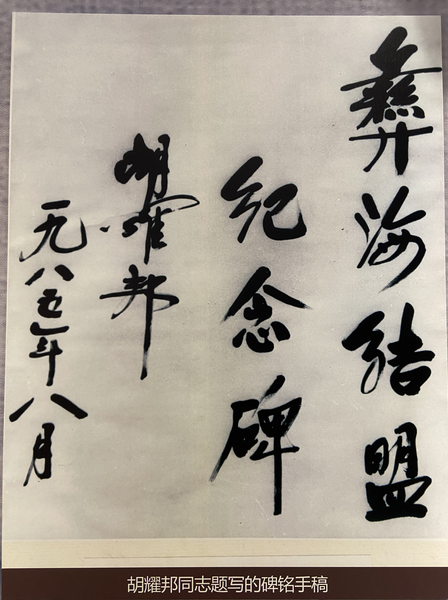 彝海結盟
纪念碑
胡耀邦
一九八五年八月
胡耀邦同志题写的碑铭手稿